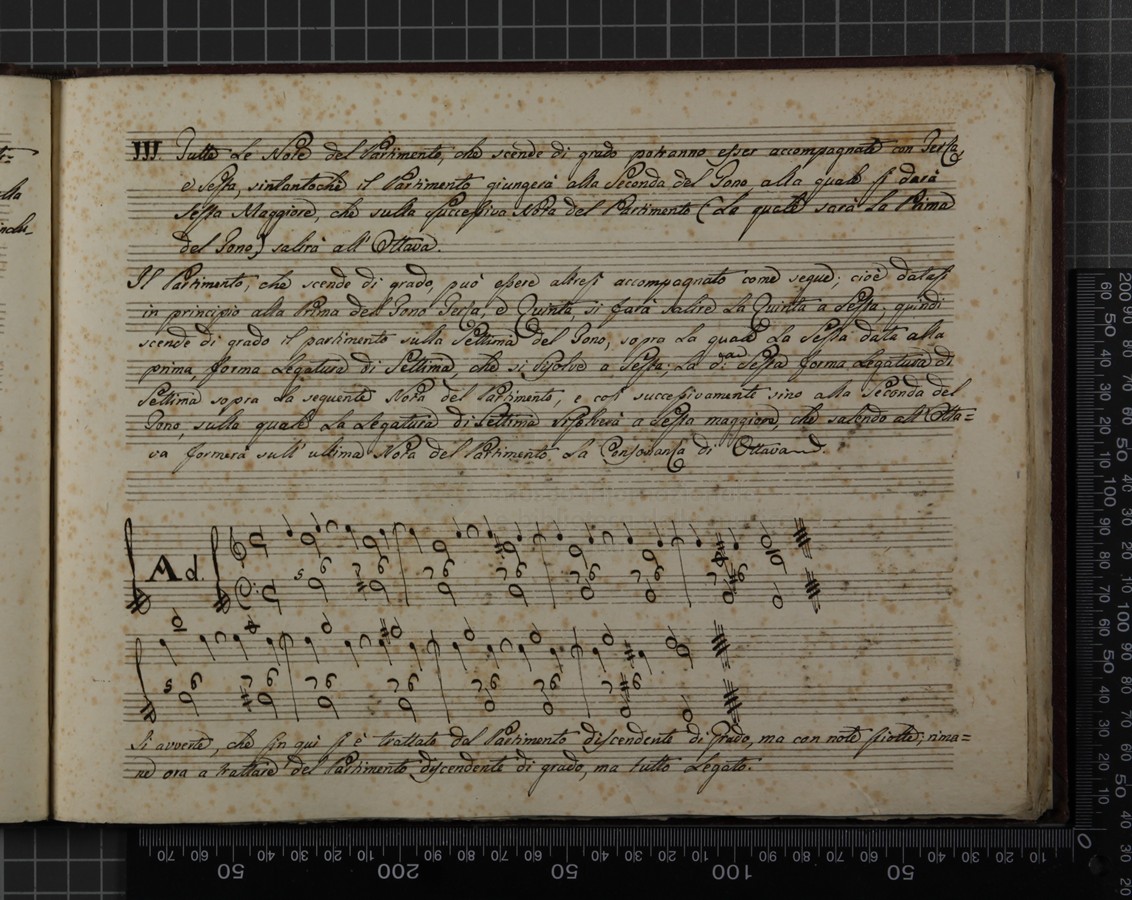 III. Tutte Le Note del Partimento, che scende di grado potranno esser accompagnate con Terza,
e Sesta, sintantochè il Partimento giungerà alla Seconda del Tono, alla quale si darà
Sesta Maggiore, che sulla successiva Nota del Partimento (La quale sarà La Prima
del Tono) salirà all' Ottava.
Il Partimento, che scende di grado, può essere altresì accompagnato come segue; cioè datasi
in principio alla Prima del Tono Terza, e Quinta si farà salire La Quinta a Sesta, quindi
scende di grado il partimento sulla Settima del Tono, sopra La quale La Sesta data alla
prima, forma Legatura di Settima, che si risolve a Sesta; La Sesta forma Legatura di
Settima sopra La seguente Nota del Partimento, e così successivamente sino alla Seconda del
Tono, sulla quale La Legatura di Settima risolverà a Sesta maggiore, che salendo all' Otta=
va formerà sull' ultima Nota del Partimento La Consonanza di Ottava.
Ad.
5 6 7 6 7 6 7 6 7 6 7 6 7 6
5 6 7 6 7 6 7 6 7 6 7 6 7 6
Si avverte, che fin qui si è trattato del Partimento discendente di grado, ma con note sciolte; rima=
ne ora a trattare del Partimento discendente di grado, ma tutto Legato.